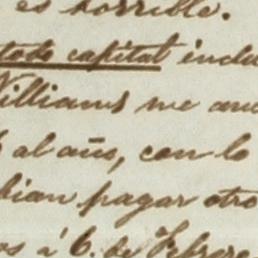 es horrible.
todo capital inclu
Williams me anu
al año, con lo
bian pagar otro
os á 6. de Febrero